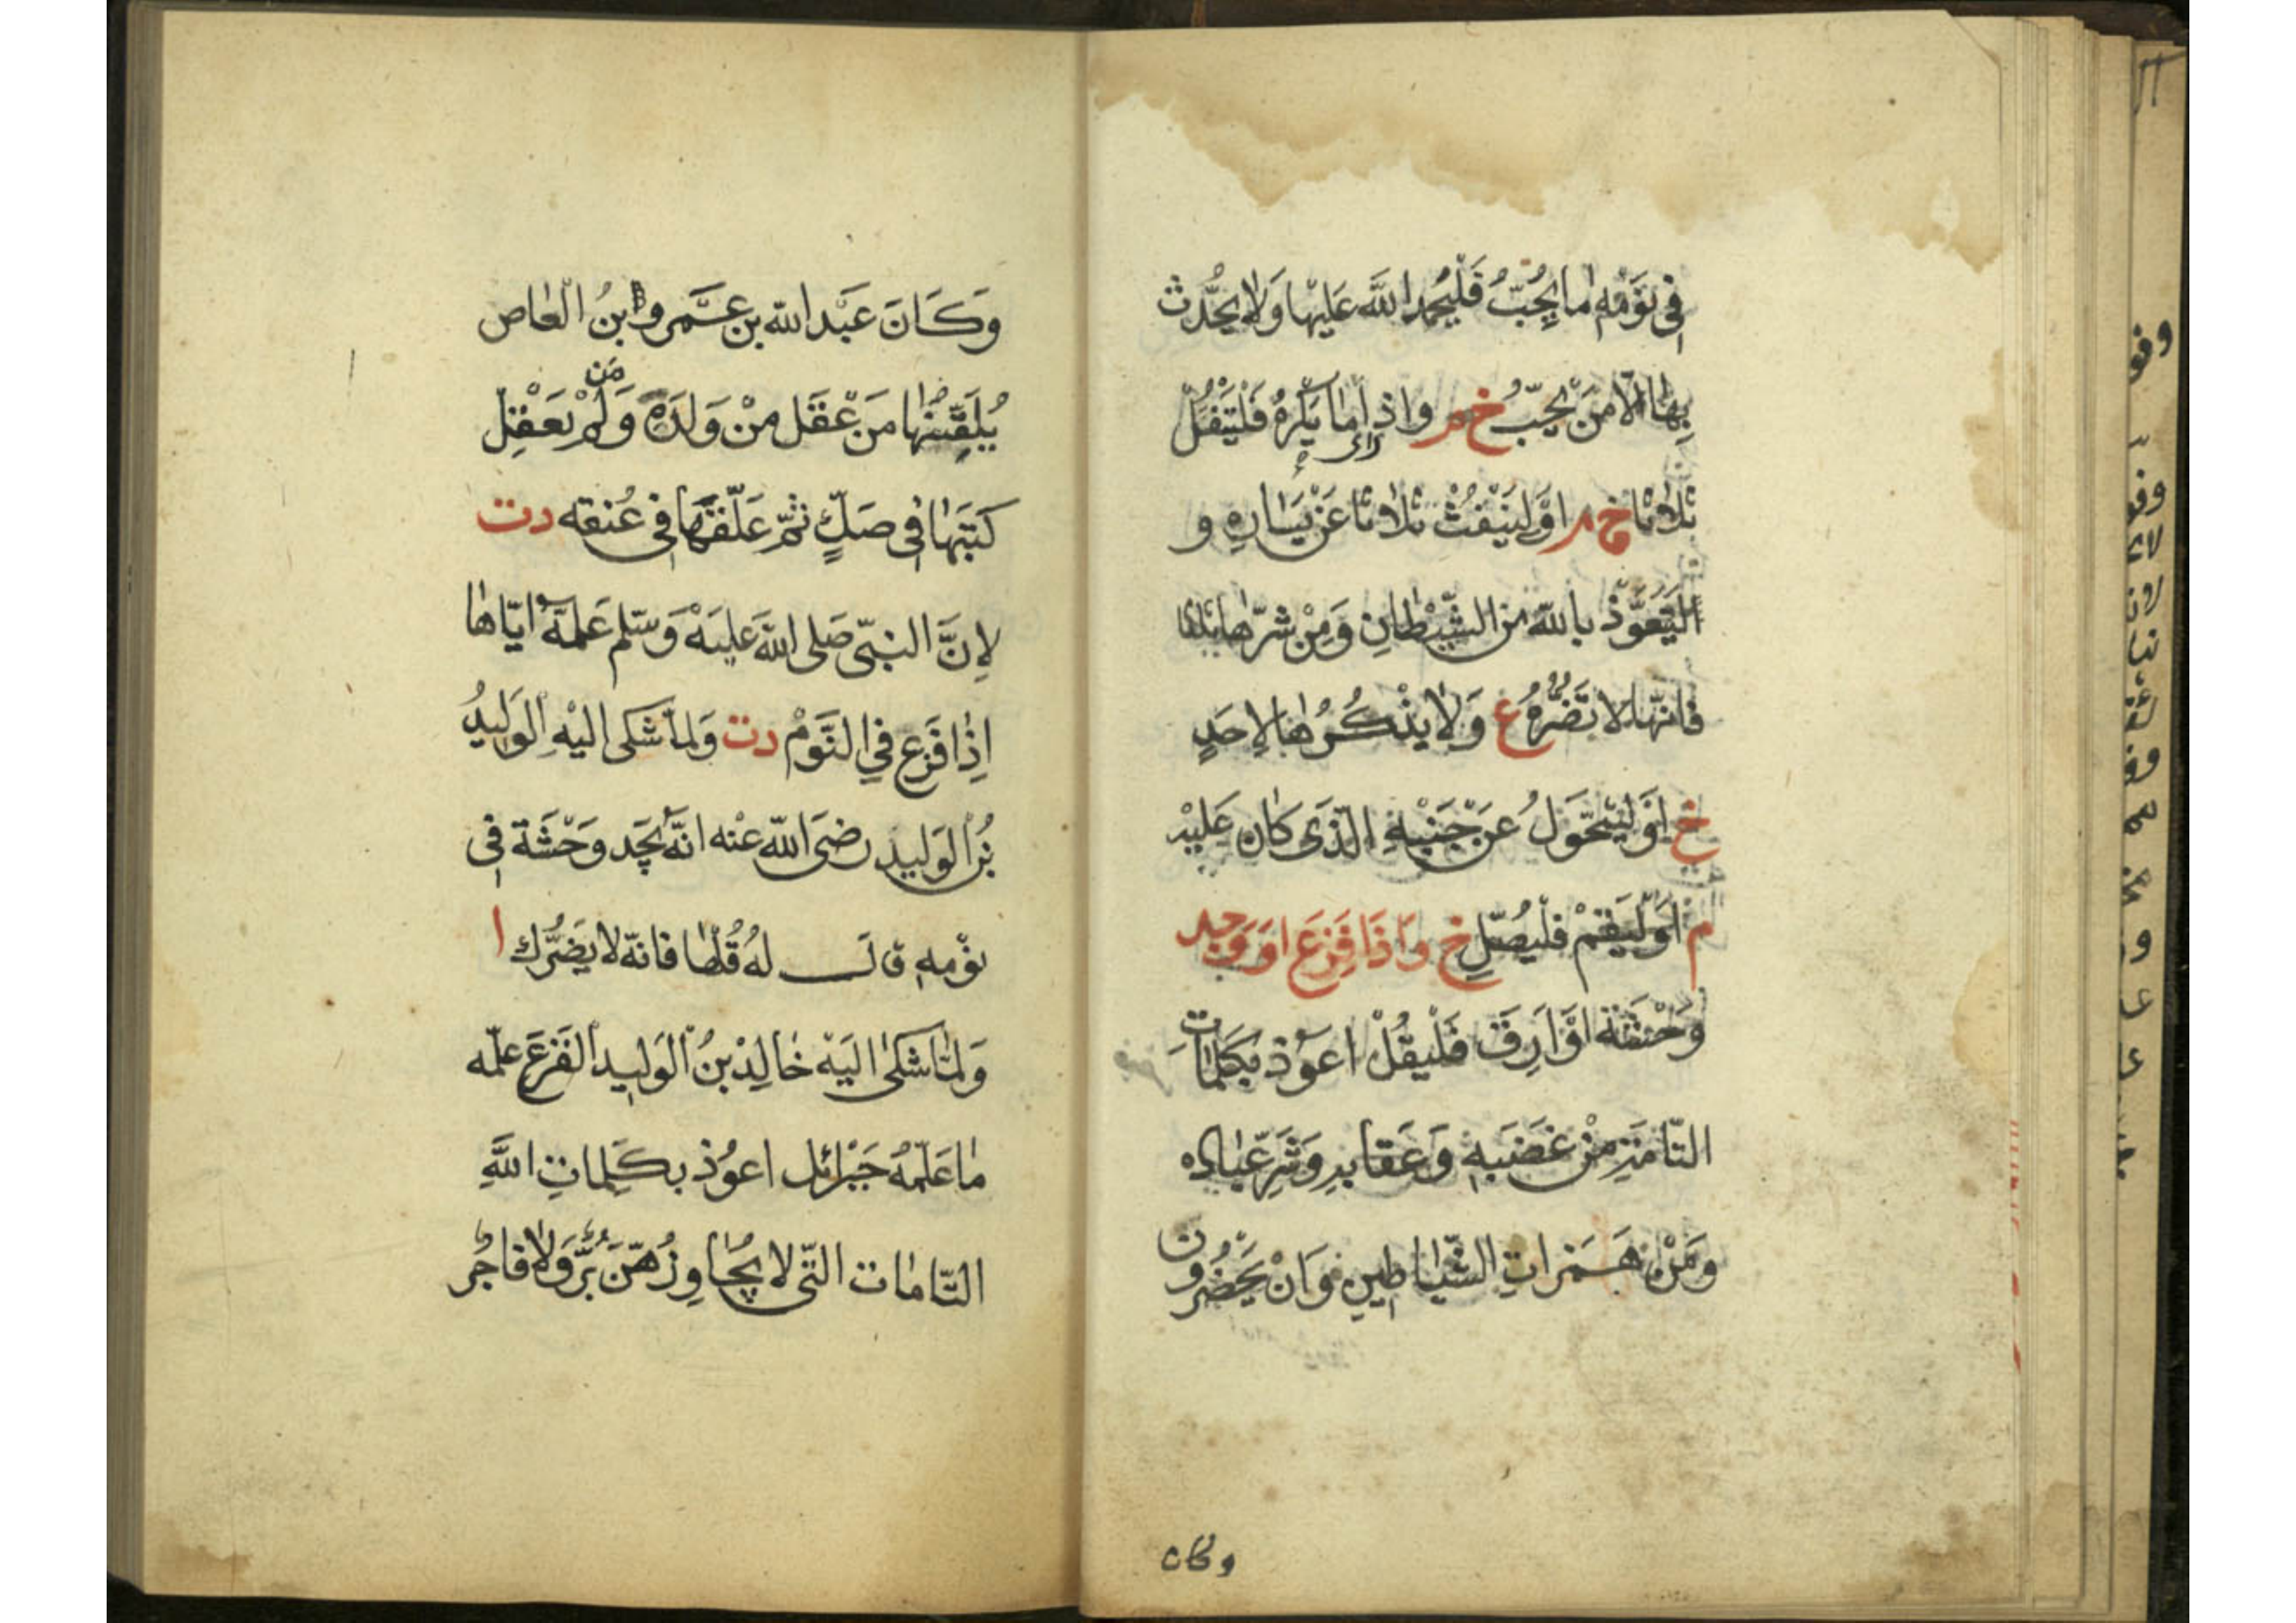 فِي نَوْمِهِ مَا يُحِبُّ فَلْيَحْمِدِ اللّٰهَ عَلَيْهَا وَلَا يُحَدِّث
بِهَا اِلَّا مَنْ يُحِبُّ خ م وَاِذَا رَاى مَا يَكْرَهُ فَلْيَتْفُلْ
ثَلَاثًا خ م اَوْ لِيَنْفُثْ ثَلَاثًا عَنْ يَسَارِهِ وَ
لْيَتَعَوَّذْ بِاللّٰهِ مِنَ الشَّيْطَانِ وَمِنْ شَرِّهَا ثَلَاثًا
فَاِنَّهَا لَا تَضُرُّهُ ع وَلَا يَذْكُرُهَا لِاَحَدٍ
خ اَوْ لِيَتَحَوَّلُ عَنْ جَنْبِهِ الَّذِي كَانَ عَلَيْهِ
م اَوْ لْيَقُمْ فَلْيُصَلِّ خ وَاِذَا فَزِعَ اَوْ وَجَدَ
وَحْشَةً اَوْ اَرِقَ فَلْيَقُلْ اَعُوذُ بِكَلِمَاتِ
التَّامَّةِ مِنْ غَضَبِهِ وَعِقَابِهِ وَشَرِّ عِبَادِهِ
وَمِنْ هَمَزَاتِ الشَّيَاطِينِ وَاَنْ يَحْضُرُونَ
وكان
وَكَانَ عَبْدُ اللّٰهِ بْنِ عَمْرٍو ابْنُ الْعَاصِ
يُلَقِّنُهَا مَنْ عَقَلَ مِنْ وَلَدِهِ وَمَنْ لَمْ يَعْقِلْ
كَتَبَهَا فِي صَكٍّ ثُمَّ عَلَّقَهَا فِي عُنُقِهِ دت
لِاَنَّ النَّبِيَّ صَلَّى اللّٰهُ عَلَيْهِ وَسَلَّمَ عَلَّمَهُ اِيَّاهَا
اِذَا فَزِعَ فِي النَّوْمِ دت وَلَمَّا شَكَى اِلَيْهِ الْوَلِيدُ
بْنُ الْوَلِيدِ رَضِيَ اللّٰهُ عَنْهُ اَنَّهُ يَجِدُ وَحْشَةً فِي
نَوْمِهِ قَالَ لَهُ قُلْهَا فَاِنَّهُ لَا يَضُرُّكَ ا
وَلَمَّا شَكَى اِلَيْهِ خَالِدُ بْنُ الْوَلِيدِ الْفَزَعَ عَلَّمَهُ
مَا عَلَّمَهُ جَبْرَائِل اَعُوذُ بِكَلِمَاتِ اللّٰهِ
التَّامَاتِ الَّتِي لَا يُجَاوِزُهُنَّ بَرٌّ وَلَا فَاجِرٌ